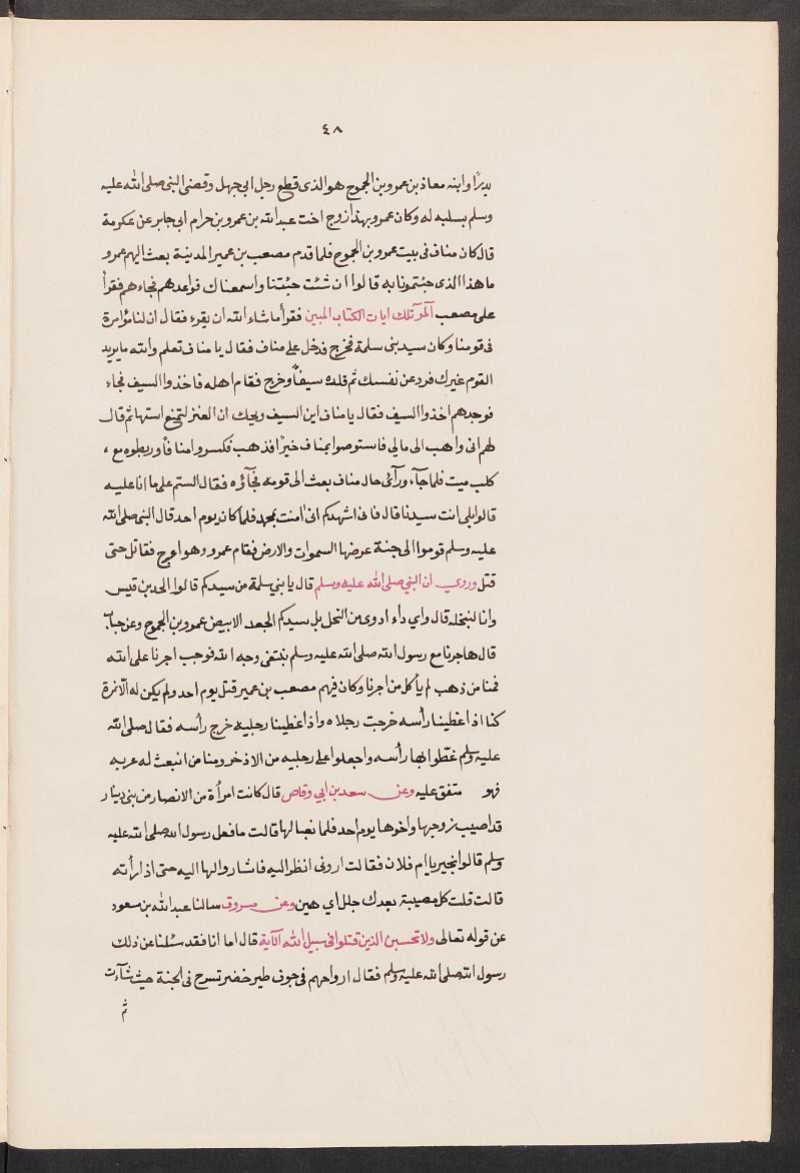 ٤٨
بدرًا وابنه معاذ بن عمرو بن الجموح هو الذى قطع رجل ابى جهل وقضى النبى صلى الله عليه
وسلم بسلبه له وكان عمرو بهذا زوج اخت عبد الله بن عمرو بن حرام ابى جابر عن عكرمة
قال كان مناف فى بيت عمرو بن الجموح فلما قدم مصعب بن عمير المدنية بعث اليهم عمرو
ما هذا الذى جئتمونا به قالوا ان شئت جئتنا واسمعناك فواعدهم فجاءهم فقرأ
على مصعب آلمر تلك ايات الكتاب المبين فقرأ ما شاء الله ان يقرء فقال ان لنا مؤامرة
فى قومنا وكان سيد بنى سلمة فخرج فدخل على مناف فقال يا مناف تعلم والله ما يريد
القوم غيرك فرد عن نفسك ثم قلده سيفاً وخرج فقام اهله فاخذوا السيف فجاء
فوجدهم اخذوا السيف فقال يا مناف اين السيف ويحك ان العنز لتمنع استها ثم قال
لهم انى واهب الى مالي فاستوصوا بمناف خيرًا فذهب فكسروا منافاً وربطوه مع
كلب ميت فلما جآء ورآئى حال مناف بعث الى قومه فجآؤه فقال الستم على ما انا عليه
قالوا بلى انت سيدنا قال فانى اشهدكم انى امنت بمحمد فلما كان يوم احد قال النبى صلى الله
عليه وسلم قوموا الى جنة عرضها السموات والارض فقام عمرو وهو اعرج فقاتل حتى
قتل وروي ان النبي صلى الله عليه وسلم قال يا بني سلمة من سيدكم قالوا الجد بن قيس
وانا لنبخله قال واي داء ادوى من البخل بل سيدكم الجعد الابيض عمرو بن الجموح وعن خباب
قال هاجرنا مع رسول الله صلى الله عليه وسلم نبتغى وجه الله فوجب اجرنا على الله
فمنا من ذهب لم يأكل من اجره وكان فيهم مصعب بن عمير قتل يوم احد ولم يكن له الا نمرة
كنا اذا غطينا رأسه خرجت رجلاه واذا غطينا رجليه خرج رأسه فقال صلى الله
عليه وسلم غطوا بها رأسه واجعلوا على رجليه من الاذخر ومنا من انبعث له
فهو متفق عليه وعن سعد بن ابي وقاص قال كانت امرأة من الانصار من بنى دينار
قد اصيب زوجها واخوها يوم احد فلما نعيا لها قالت ما فعل رسول الله صلى الله عليه
وسلم قالوا بخير يا ام فلان فقالت ارونى انظر اليه فاشاروا لها اليه حتى اذا رأته
قالت قلت كل مصيبة بعدك جلل اي هين وعن مسروق سالنا عبد الله بن مسعود
عن قوله تعالى ولا تحسبن الذين قتلوا فى سبيل الله الآية قال اما انا فقد سئلنا عن ذلك
رسول الله صلى الله عليه وسلم فقال ارواحهم فى جوف طير خضر تسرح فى الجنة حيث شآءت
ثم